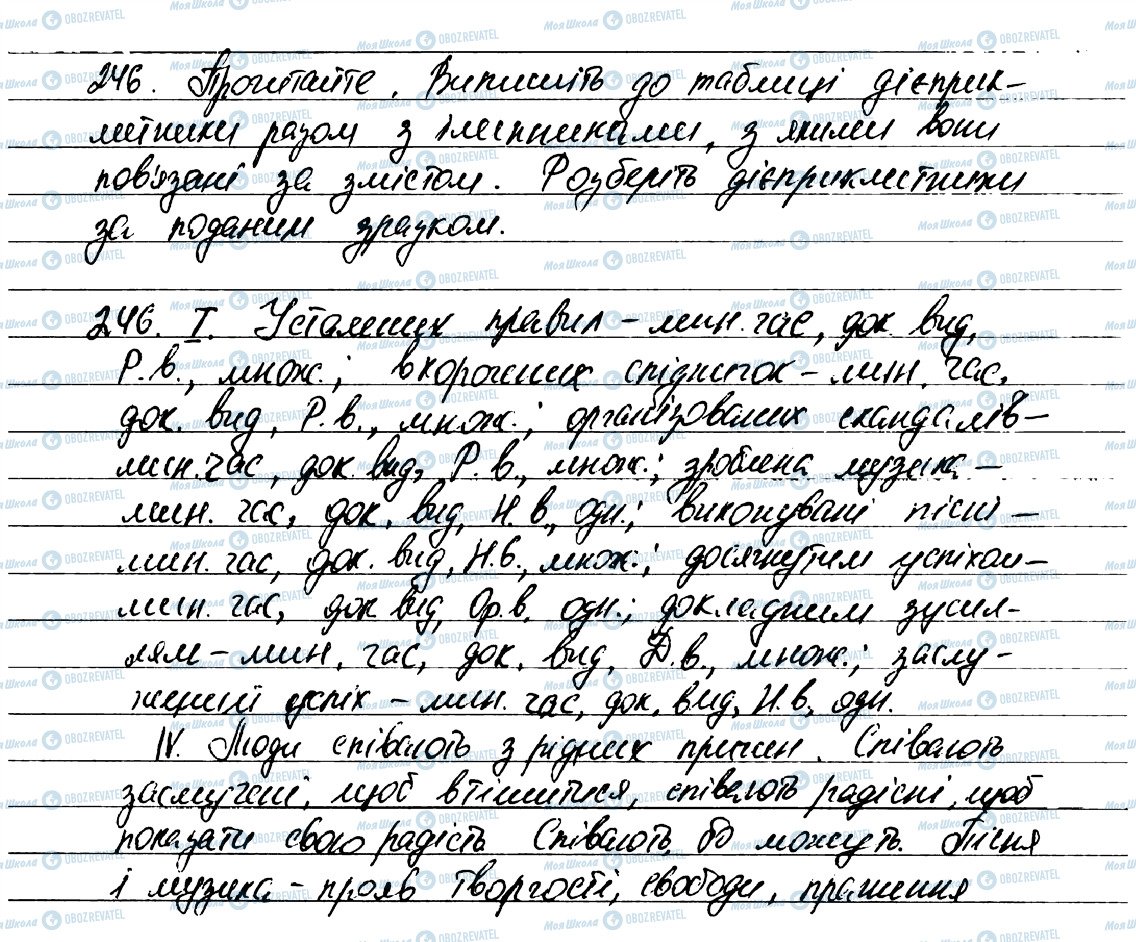 246. Прочитайте. Випишіть до таблиці дієприк-
метники разом з іменниками, з якими вони
пов'язані за змістом. Розберіть дієприкметники
за поданим зразком.
246. I. Усталених правил – мин. час, док. вид,
Р.в., множ.; вкорочених спідничок – мин. час,
док. вид, Р.в., множ.; організованих скандалів –
мин. час, док. вид, Р.в., множ.; зроблена музика –
мин. час, док. вид, Н.в., одн.; виконувані пісні –
мин. час, док. вид, Н.в., множ.; досягнутим успіхом –
мин. час, док вид, Ор.в. одн.; докладеним зусил-
лям – мин. час, док. вид, Д.в., множ.; заслу-
жений успіх – мин. час, док. вид, Н.в, одн.
IV. Люди співають з різних причин. Співають
засмучені, щоб втішитися, співають радісні, щоб
показати свою радість Співають, бо можуть. Пісня
і музика – прояв творчості, свободи, прагнення